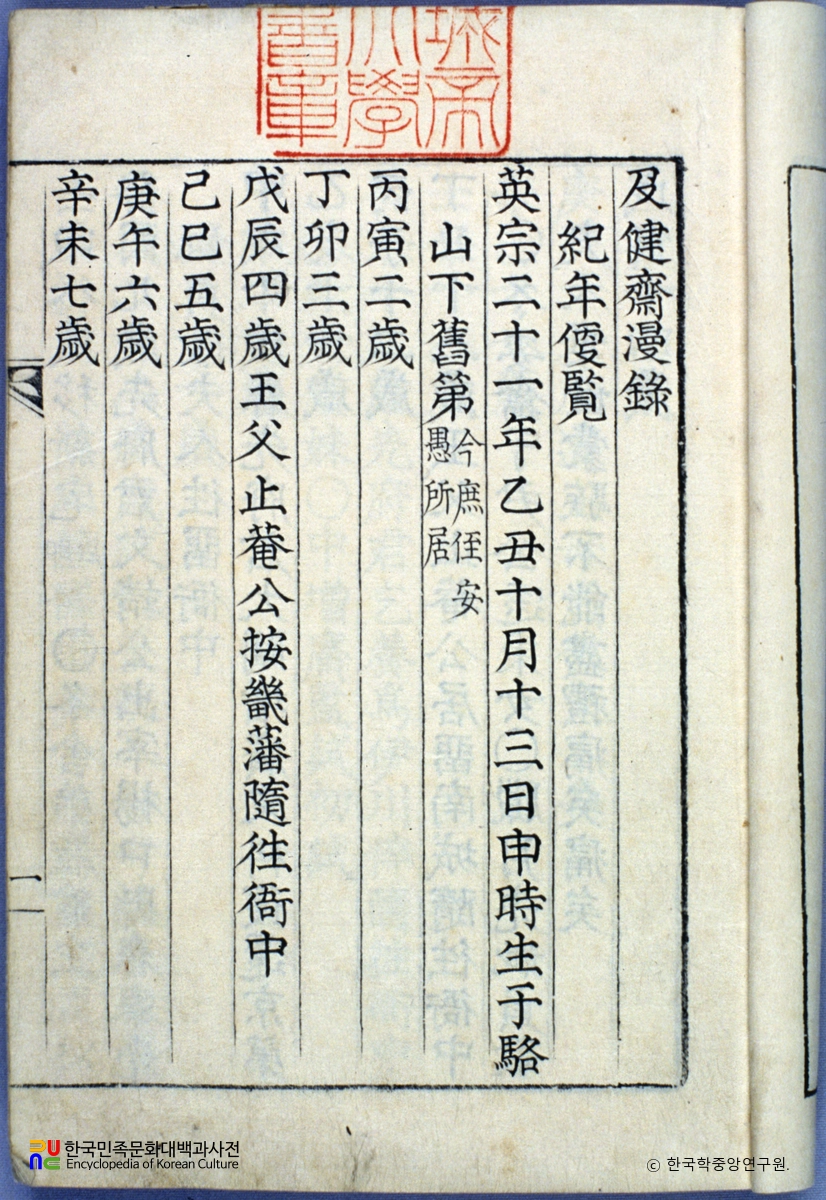 城帝
大學
書章
及健齋漫錄
紀年便覽
英宗二十一年乙丑十月十三日申時生于駱
山下舊第今庶侄安
愚所居
丙寅二歲
丁卯三歲
戊辰四歲王父止菴公按畿藩隨徃衙中
己巳五歲
庚午六歲
辛未七歲
一
한국민족문화대백과사전
Encyclopedia of Korean Culture
© 한국학중앙연구원.